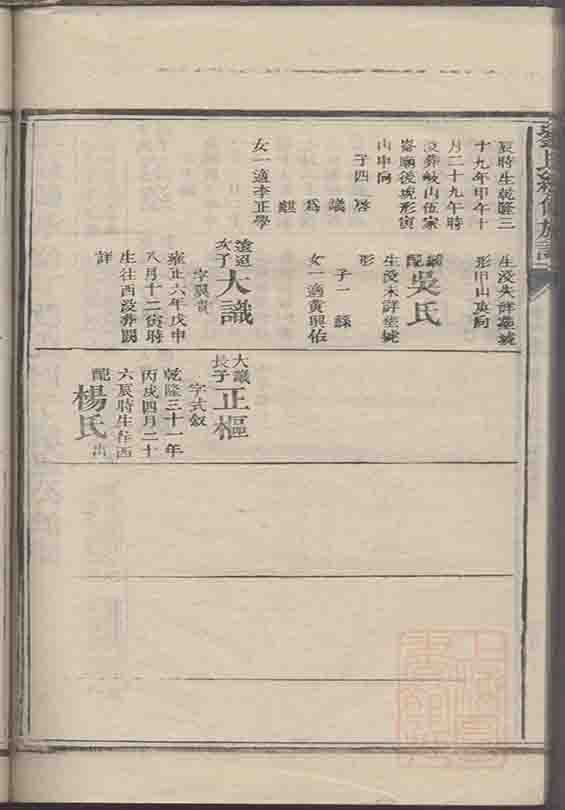 辰時生乾隆三
十九年甲午十
月二十九午時
歿葬岐山伍家
崙廟後虎形寅
山申向
子四 啓
議
爲
麒
女一適李正學
生没失詳葬城
形甲山庚向
繼配吳氏
生没未詳葬城
形
子一 謀
女一適黃興佑
次子大識
字翼貴
雍正六年戊申
八月十二寅時
生往西没葬闕
詳
大議長子正樞
字式叙
乾隆三十一年
丙戌四月二十
六辰時生往西
配楊氏